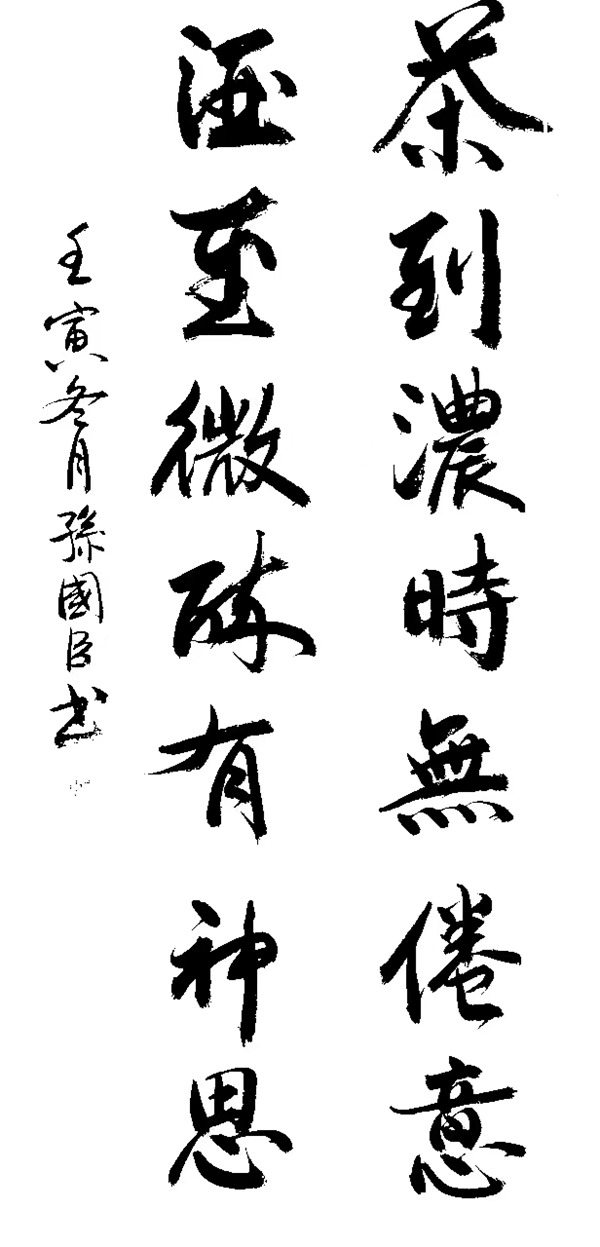 茶到濃時無倦意
酒至微酣有神思
壬寅冬月孫國臣书